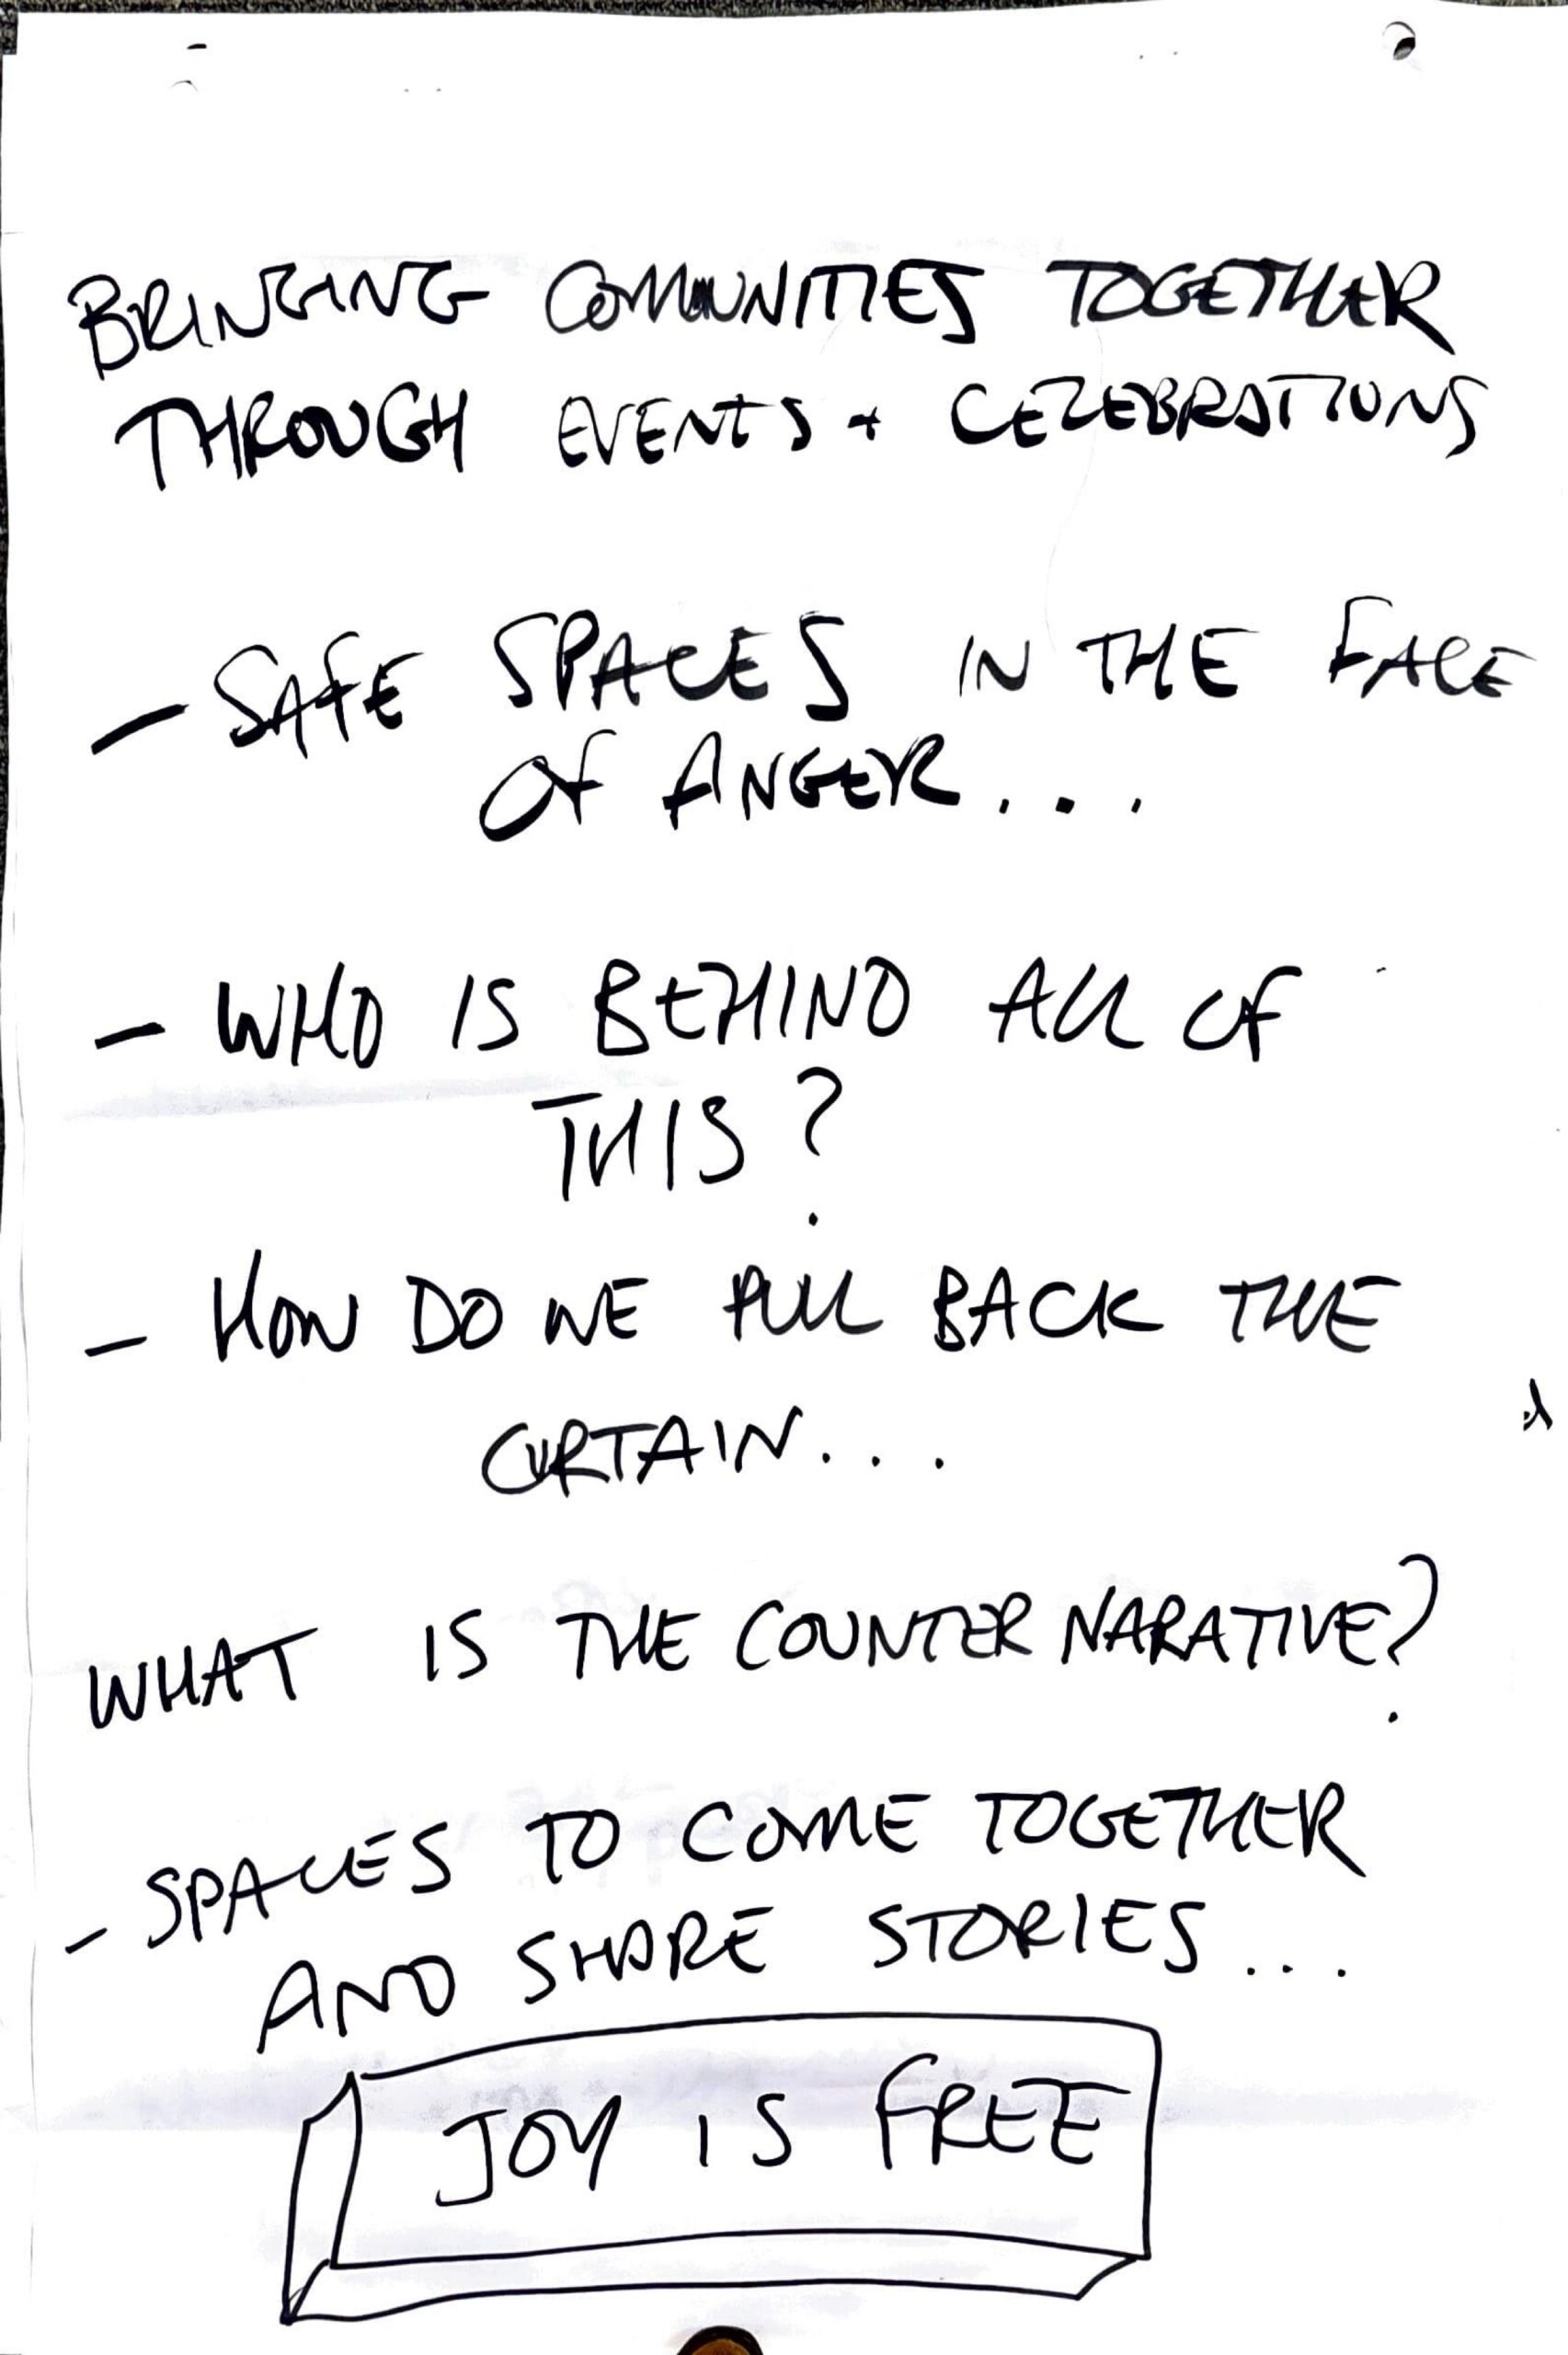 BRINGING COMMUNITIES TOGETHER
THROUGH EVENTS + CELEBRATIONS
- SAFE SPACES IN THE FACE
OF ANGER...
- WHO IS BEHIND ALL OF
THIS?
- HOW DO WE PULL BACK THE
CURTAIN...
WHAT IS THE COUNTER NARATIVE?
- SPACES TO COME TOGETHER
AND SHARE STORIES...
JOY IS FREE